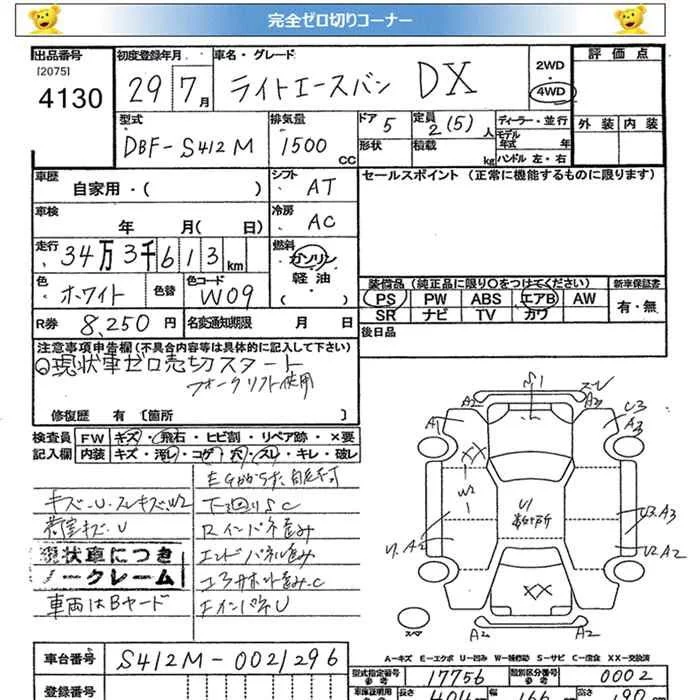 完全ゼロ切りコーナー
出品番号 初度登録年月 車名・グレード 2WD 評価点
[2075]
4130 29年7月 ライトエースバン DX 4WD
型式 排気量 ドア 5 定員 2(5)人 ディーラー・並行 外装 内装
モデル年式 年
DBF-S412M 1500cc 形状 積載 kg ハンドル 左・右
車歴 シフト セールスポイント (正常に機能するものに限ります)
自家用・( ) AT
車検 年 月( 日) 冷房 AC
走行 34万3千613km 燃料 ガソリン
軽油
色 ホワイト 色替 色コード W09
装備品 (純正品に限り○をつけてください) 新車保証書
PS PW ABS エアB AW 有・無
SR ナビ TV カワ
R券 8,250円 名変通知期限 月 日 後日品
注意事項申告欄(不具合内容等は具体的に記入して下さい)
◎現状車ゼロ売切スタート
フォークリフト使用
修復歴 有 [箇所 ]
検査員 FW キズ・飛石・ヒビ割・リペア跡・×要
記入欄 内装 キズ・汚レ・コゲ・穴・スレ・キレ・破レ
キズ・U・スレキズ・W2 下廻りSC
荷室キズ・U Rインパネ歪み
現状車につき エンドパネル歪み
ノークレーム
車両はBヤード
S1
A2 A2
A1 U3
A3
XX
W2
U1
U3.A3
U2.A2
XX
スペア A2 A2
A-キズ E-エクボ U-凹み W-補修跡 S-サビ C-腐食 XX-交換済
車台番号 S412M-0021296 型式指定番号 17756 類別区分番号 0002
参考 参考
登録番号 車庫証明用 長さ 幅 166 高さ 190